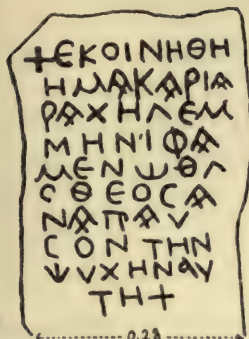 +ΕΚΟΙΝΗΘΗ
ΗΜΑΚΑΡΙΑ
ΡΑΧΗΛΕΜ
ΜΗΝ'ΙΦΑ
ΜΕΝΨΘΛ
CΘΕΟCΑ
ΝΑΠΑΥ
CΟΝ ΤΗΝ
ΨΥΧΗΝΑΥ
ΤΗ+
0.28